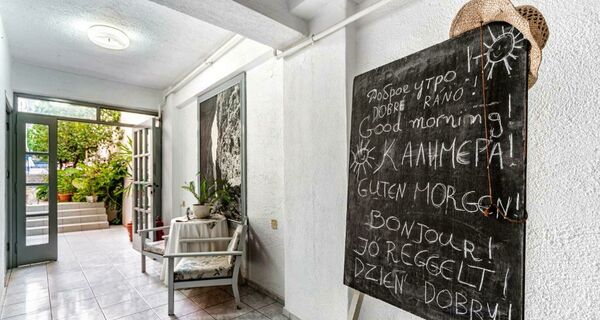 Доброе утро!
DOBRE RANO!
Good morning!
ΚΑΛΗΜΕΡΑ!
GUTEN MORGEN!
BONJOUR!
JÓ REGGELT!
DZIEŃ DOBRY!